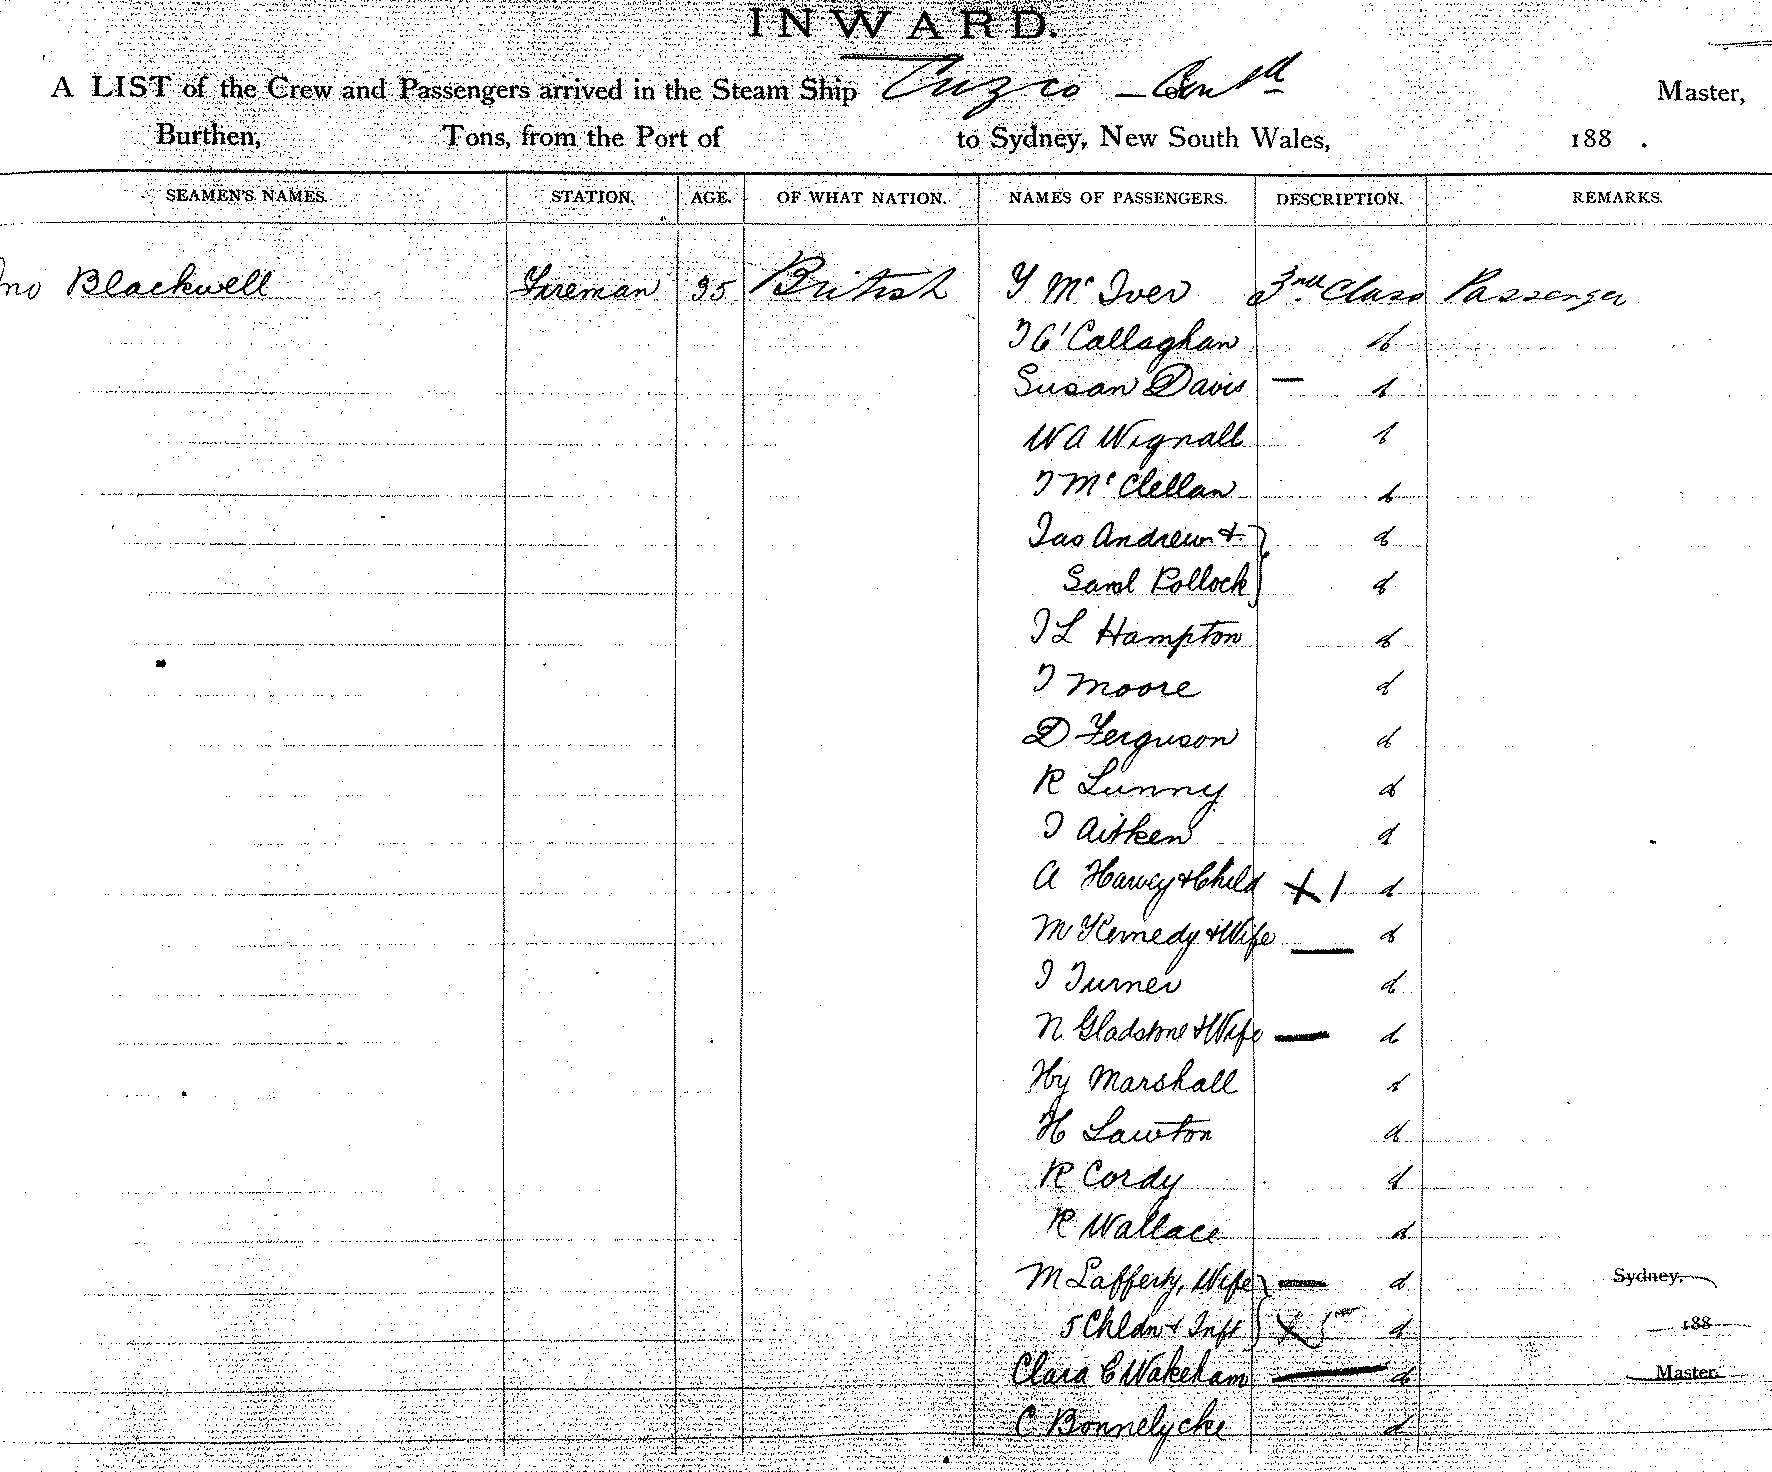 INWARD.
A LIST of the Crew and Passengers arrived in the Steam Ship Cuzco - Contd Master,
Burthen, Tons, from the Port of to Sydney, New South Wales, 188 .
SEAMEN'S NAMES. STATION. AGE. OF WHAT NATION. NAMES OF PASSENGERS. DESCRIPTION. REMARKS.
Jno Blackwell Fireman 35 British Y McIver 3rd Class Passenger
J O'Callaghan do
Susan Davis — do
W A Wignall do
J McClellan do
Jas Andrew & do
Saml Pollock do
J L Hampton do
J Moore do
D Ferguson do
R Lunny do
J Aitken do
A Harvey & Child X 1 do
M Kennedy & Wife — do
J Turner do
N Gladstone & Wife — do
Hy Marshall do
H Lawton do
R Cordy do
R Wallace do
M Lafferty, Wife — do Sydney,
5 Chldn & Inft X 5 do 188
Clara C Wakeham — do Master.
C Bonnelycke do